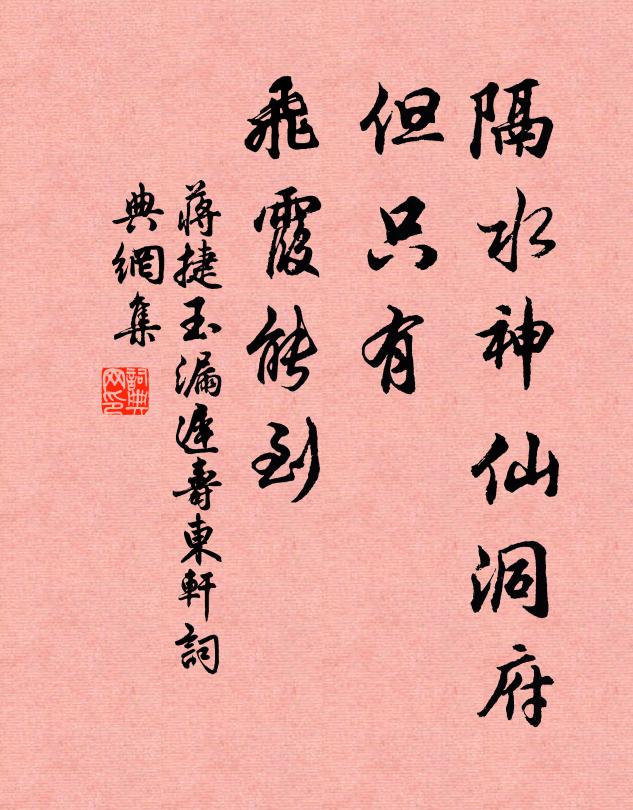 隔水神仙洞府
但只有
飛霞能到
蔣捷玉漏遲壽東軒詞
典網集
詞典
网印